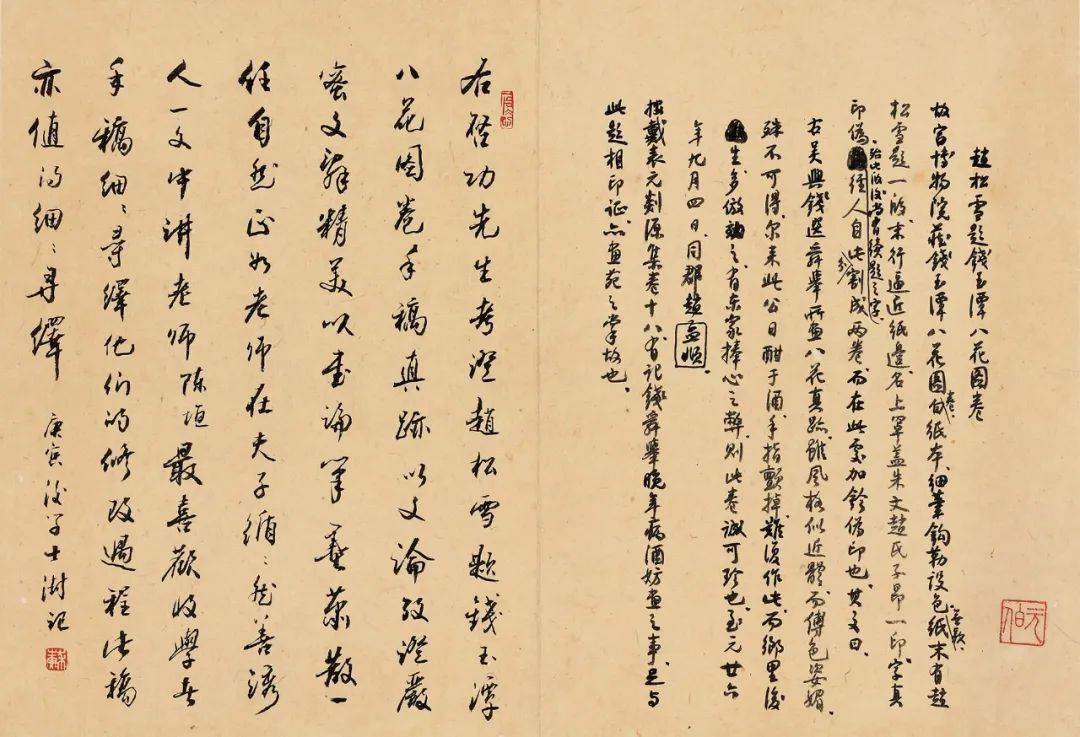 趙松雪題錢玉潭八花圖卷
故宮博物院藏錢玉潭八花圖卷、白紙本、細筆鈎勒設色、無款、紙末有趙
松雪題一段、末行逼近紙邊、名上單蓋朱文趙氏子昂一印、字真
印偽、殆此段後尚有續題之字、經人自此割成兩卷、而在此處加鈐偽印也、其文曰、
右吳興錢選舜舉所畫八花真跡、雖風格似近體、而傅色姿媚、
殊不可得、尔來此公日酣于酒、手指顫掉、難復作此、而鄉里後
生多倣效之、有東家捧心之弊、則此卷誠可珍也、至元廿六
年九月四日、同郡趙孟頫、
按戴表元剡源集卷十八有記錢舜舉晚年病酒妨畫之事、足与
此題相印证、亦畫苑之掌故也、
元伯
右啓功先生考證趙松雪題錢玉潭
八花圖卷手稿真跡以文論考證嚴
密文辞精美以書論筆墨蕭散一
任自然正如老師在夫子循〻然善誘
人一文中講老師陳垣最喜歡收學者
手稿細〻尋繹他们的修改過程此稿
亦值得細〻尋繹
庚寅後学士澍記